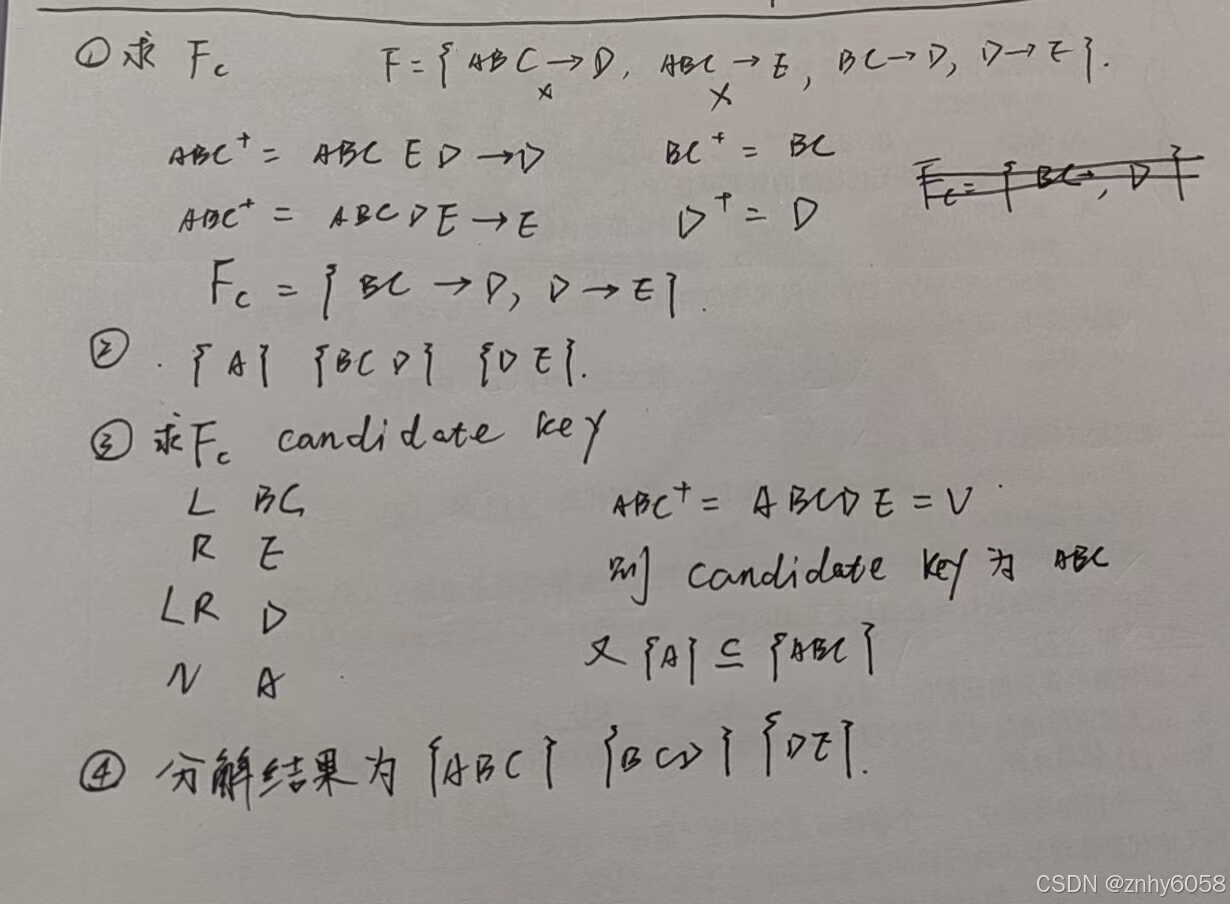 ① 求 Fc F={ABC→D, ABC→E, BC→D, D→E}.
× ×
ABC⁺ = ABC E D → D BC⁺ = BC
Fc = { BC→, D }
ABC⁺ = ABCDE → E D⁺ = D
Fc = { BC → D, D → E }.
② . {A} {BCD} {DE}.
③ 求Fc candidate key
L BC
ABC⁺ = ABCDE = U
R E
则 candidate key 为 ABC
LR D
又 {A} ⊆ {ABC}
N A
④ 分解结果为 {ABC} {BCD} {DE}.
CSDN @znhy6058